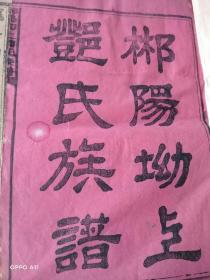 郴陽坳上
鄧氏族譜
OPPO A11